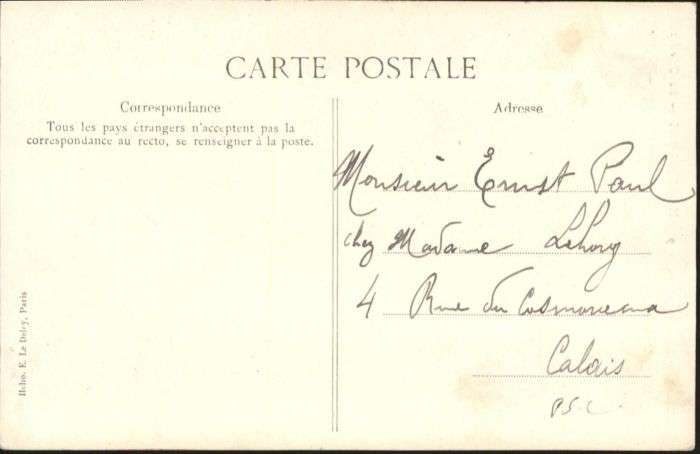 CARTE POSTALE
Correspondance
Tous les pays étrangers n'acceptent pas la
correspondance au recto, se renseigner à la poste.
Adresse
Monsieur Ernst Paul
chez Madame
4 Rue du
Calais
P.S.C.
E. Le Deley, Paris